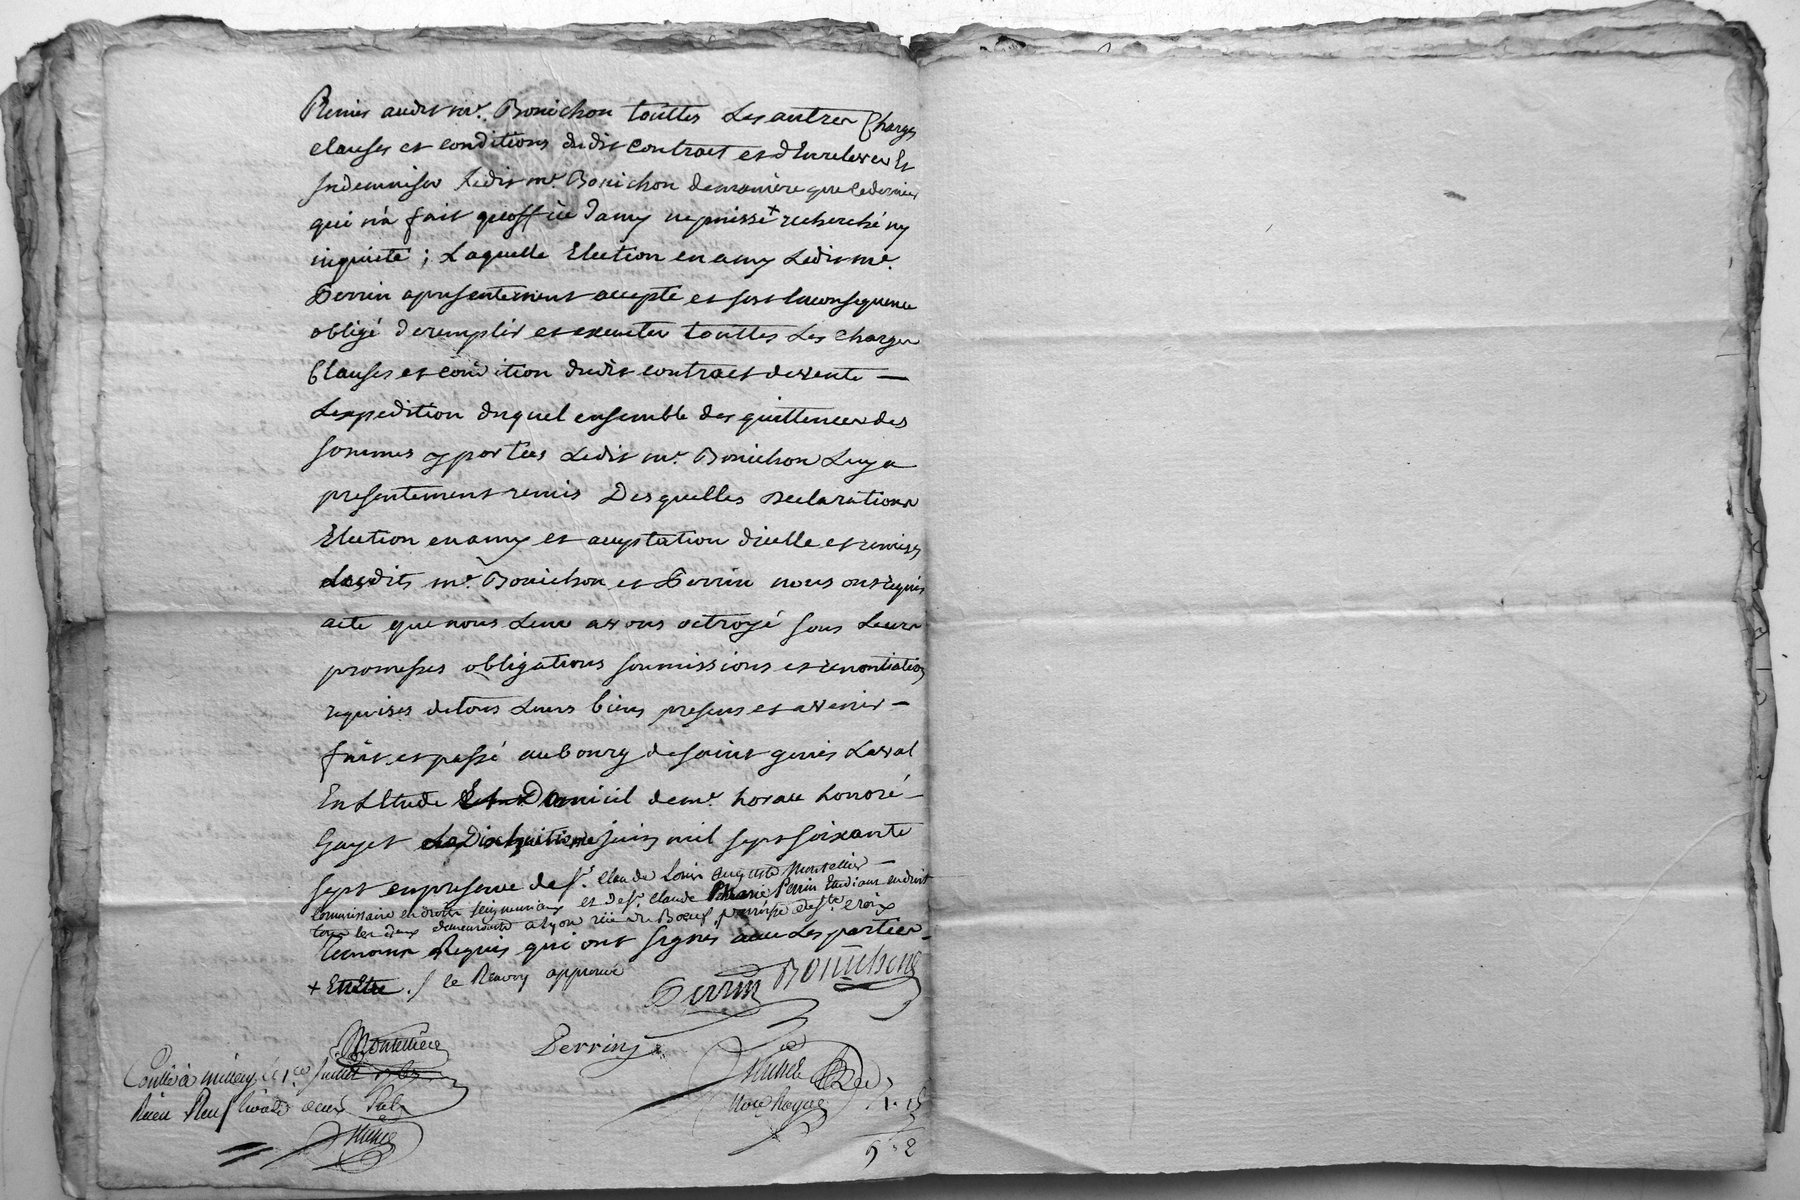 Remis audit mr. Bonichon touttes Les autres Charges
clauses et conditions dudit Contract et d'En relever Et
Indemniser Ledit mr. Bonichon de maniere que ce dernier
qui n'a fait qu'office d'amy ne puisse + recherché ny
inquieté ; Laquelle Election en amy Ledit me.
Perrin a presentement accepté et s'est En consequence
obligé de remplir et executer touttes Les charges
Clauses et condition dudit contract de vente —
L'expedition duquel ensemble des quittences des
sommes y portées Ledit mr. Bonichon Luy a
presentement remis Desquelles Declarations
Election en amy et acceptation d'icelle et remises
Lesdits mrs Bonichon et Perrin nous ont requis
acte que nous Leur avons octroyé sous Leurs
promesses obligations soumissions et renontiations
requises de tous Leurs biens presens et avenir —
fait et passé au bourg de saint genis Laval
En L'Etude Et Domicil de me. horace honoré —
Gayet Le Dixhuitieme juin mil sept soixante
sept en presence de sr. claude Louis auguste Montellier —
Commissaire en droits seigneuriaux et de sr. claude Marie Perrin Etudiant en droit
tous les deux demeurants a lyon rüe du Boeuf parroisse de ste. croix
temoins Requis qui ont signés avec Les parties
+ Etre / le Renvoy approuvé
Perrin Bonichon
Montellier
Perrin
Collé à millery le 1er Juillet 1767
notre Royal
1.15